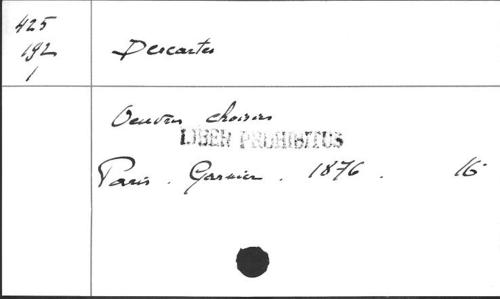 425
192
1
Descartes
Oeuvres choisies
LIBER PROHIBITUS
Paris . Garnier . 1876 . 16°